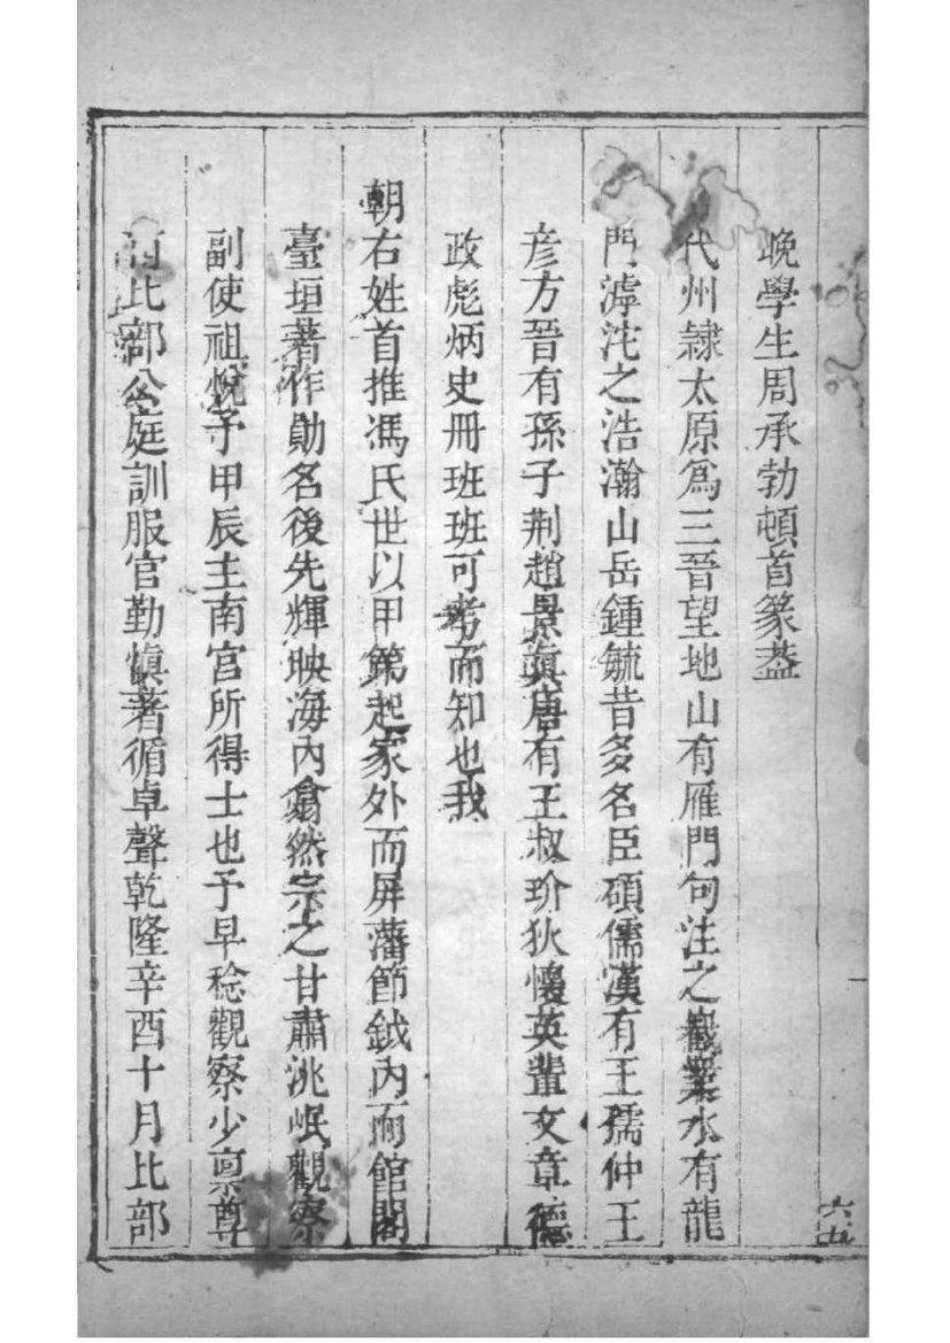 晚學生周承勃頓首篆葢
代州隷太原爲三晉望地山有雁門句注之巀嶪水有龍
門滹沱之浩瀚山岳鍾毓昔多名臣碩儒漢有王孺仲王
彦方晉有孫子荆趙景眞唐有王叔玠狄懷英輩文章德
政彪炳史冊班班可考而知也我
朝右姓首推馮氏世以甲第起家外而屏藩節鉞内而館閣
臺垣著作勛名後先輝映海内翕然宗之甘肅洮岷觀察
副使祖悅予甲辰主南宮所得士也予早稔觀察少禀尊
比部公庭訓服官勤愼著循卓聲乾隆辛酉十月比部
六十五